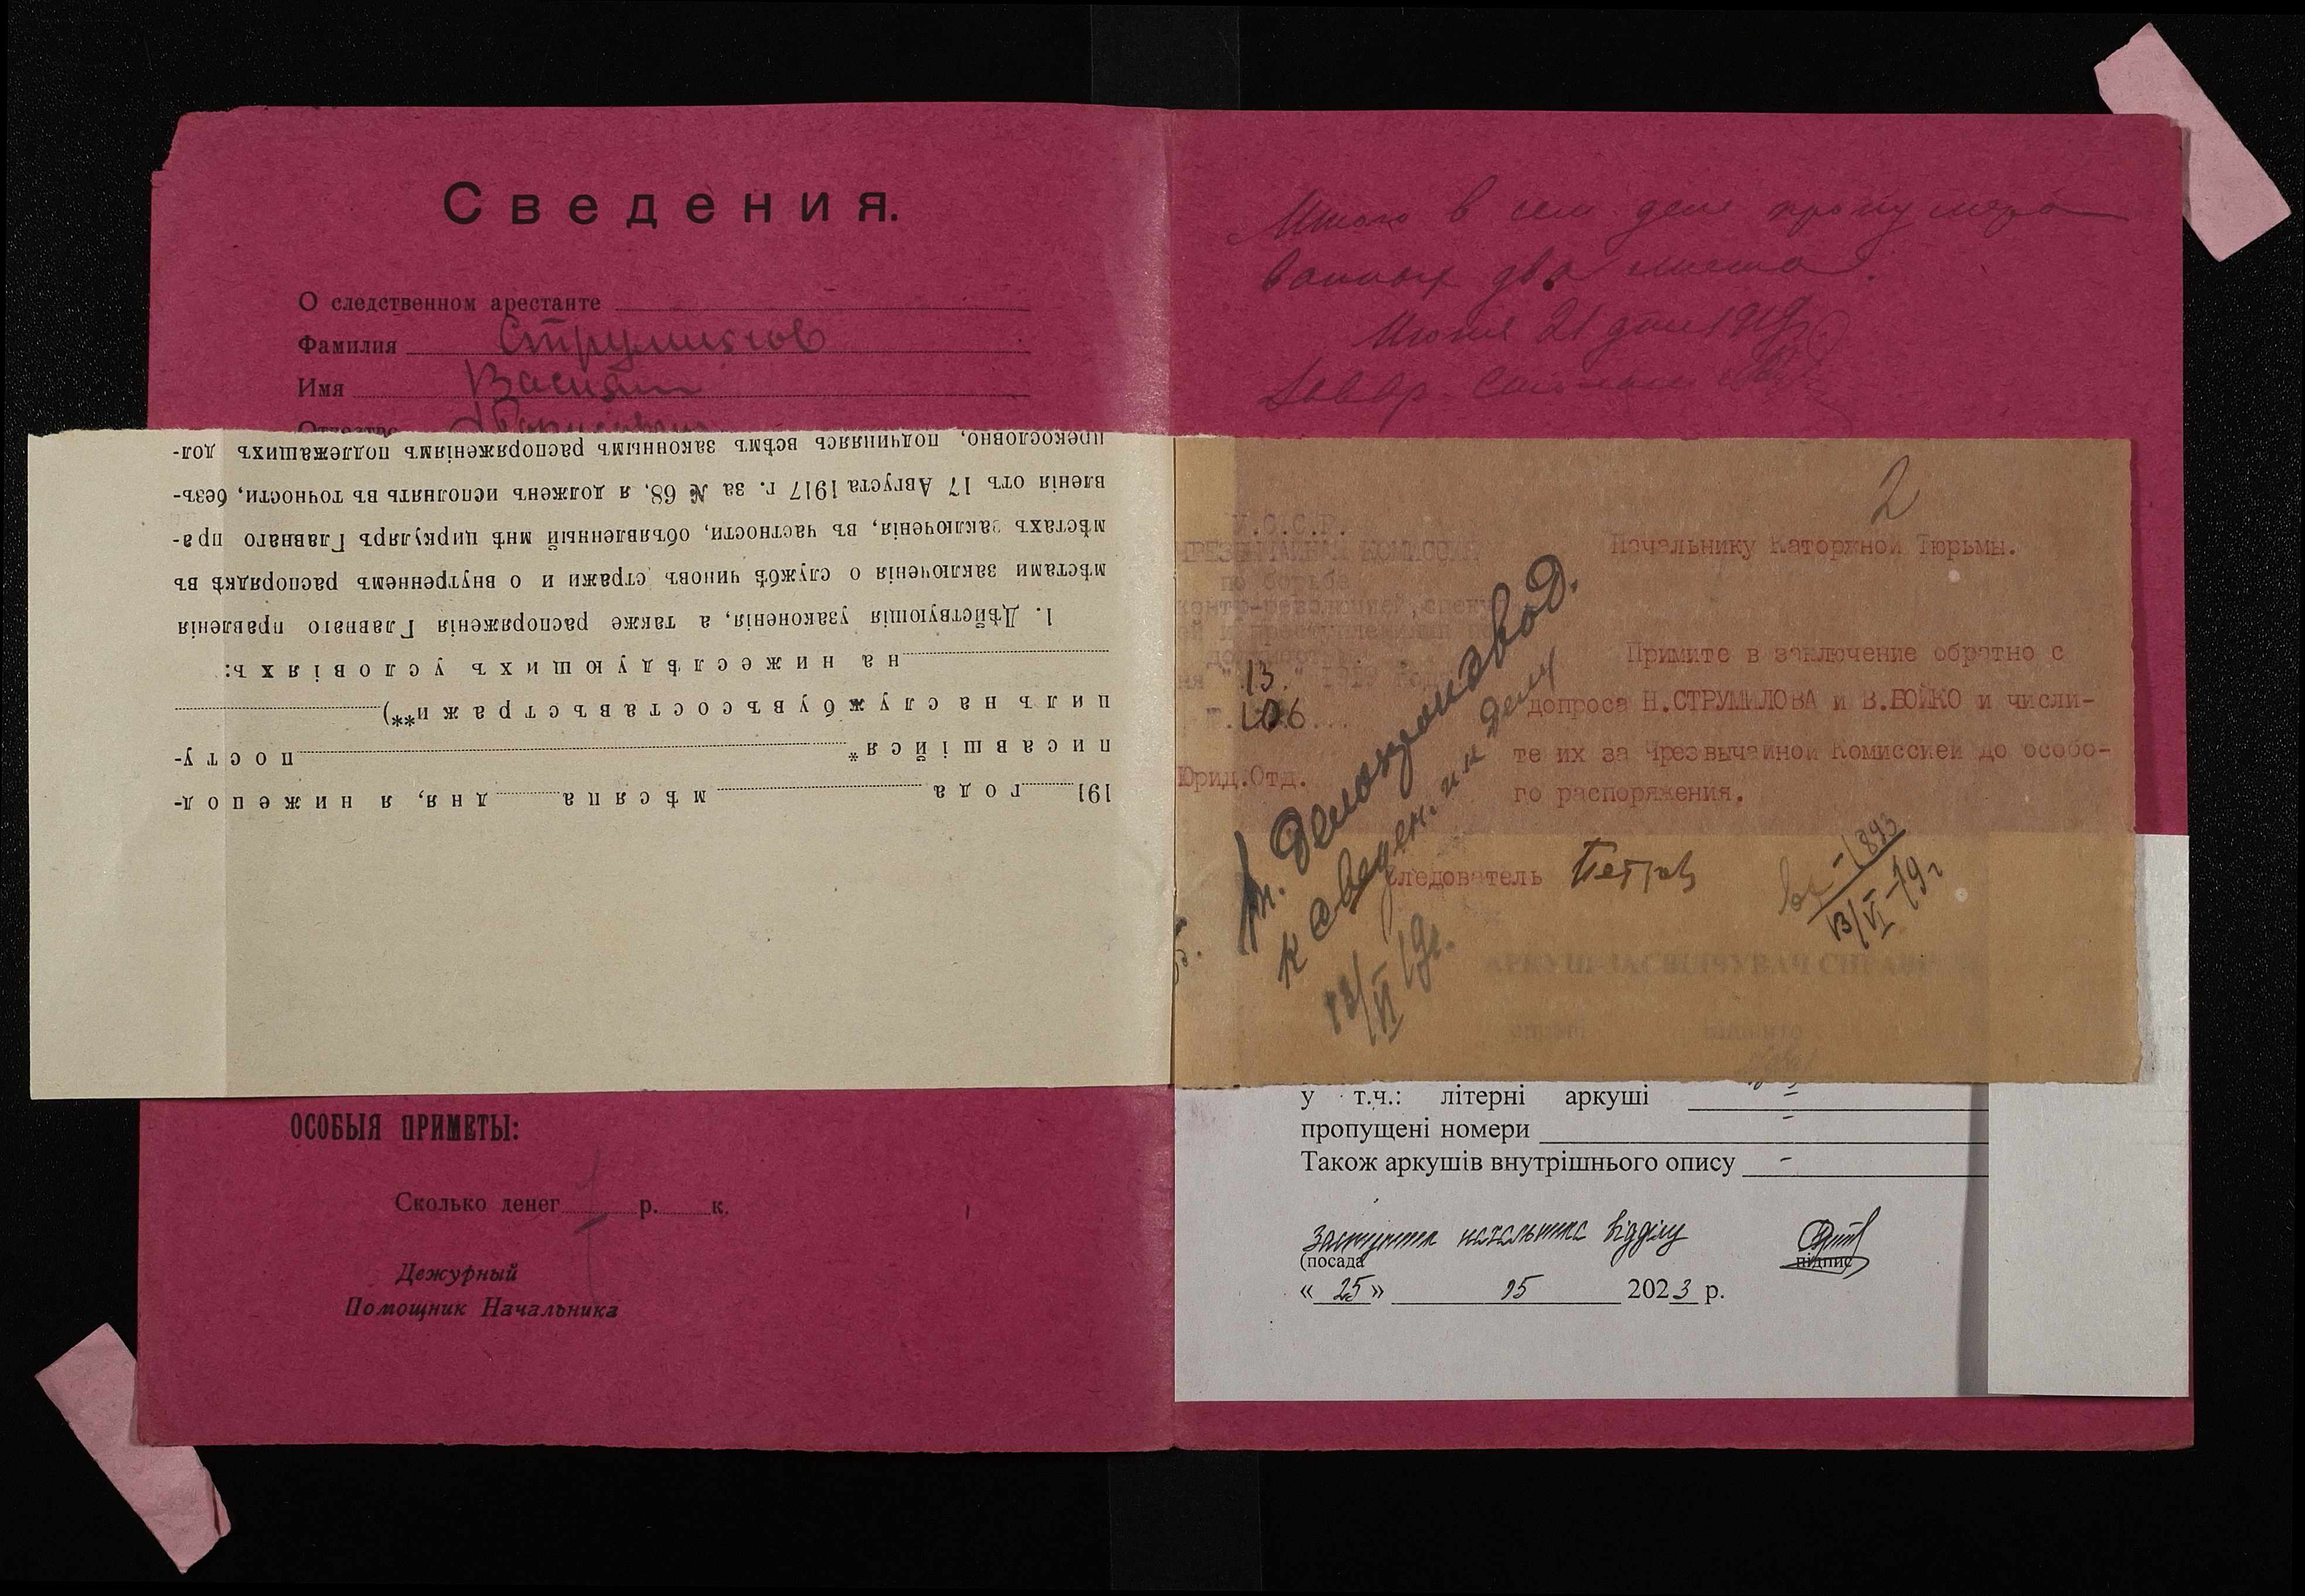 Сведения.
О следственном арестанте
Фамилия Струмилов
Имя Василий
Отчество
191 года мѣсяца дня, я нижепод-
писавшійся* посту-
пилъ на службу въ составъ стражи**)
на нижеслѣдующихъ условіяхъ:
1. Дѣйствующія узаконенія, а также распоряженія Главнаго правленія
мѣстами заключенія о службѣ чиновъ стражи и о внутреннемъ распорядкѣ въ
мѣстахъ заключенія, въ частности, объявленный мнѣ циркуляръ Главнаго пра-
вленія отъ 17 Августа 1917 г. за № 68, я долженъ исполнять въ точности, безъ-
прекословно, подчиняясь всѣмъ законнымъ распоряженіямъ подлежащихъ дол-
ОСОБЫЯ ПРИМЕТЫ:
Сколько денег р. к.
Дежурный
Помощник Начальника
Итого в сем деле пронумеро
ванных два листа.
Июня 21 дня 1919
2
У.С.С.Р.
ЧРЕЗВЫЧАЙНАЯ КОМИССИЯ
по борьбе
контр-революцией, спеку
13
106
Юрид.Отд.
Начальнику Каторжной Тюрьмы.
Примите в заключение обратно с
допроса Н.СТРУМИЛОВА и В.БОЙКО и числи-
те их за Чрезвычайной Комиссией до особо-
го распоряжения.
Следователь Петров
Делопроизвод.
к сведен. и к делу
13/VI 19г.
вх-1893
13/VI-19г
АРКУШ-ЗАСВІДЧУВАЧ СПРАВИ
у т.ч.: літерні аркуші -
пропущені номери -
Також аркушів внутрішнього опису -
заступник начальника відділу
(посада підпис
« 25 » 05 2023 р.